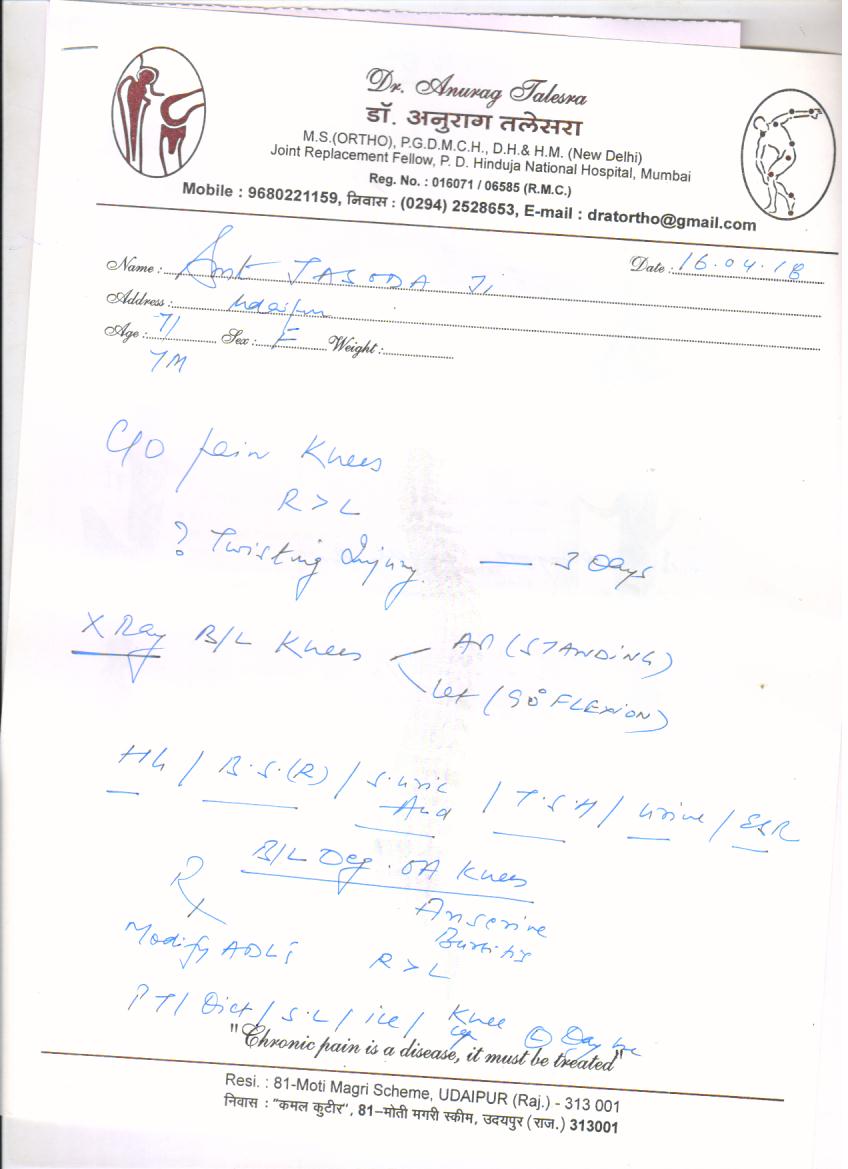 Dr. Anurag Talesra
डॉ. अनुराग तलेसरा
M.S.(ORTHO), P.G.D.M.C.H., D.H.& H.M. (New Delhi)
Joint Replacement Fellow, P. D. Hinduja National Hospital, Mumbai
Reg. No. : 016071 / 06585 (R.M.C.)
Mobile : 9680221159, निवास : (0294) 2528653, E-mail : dratortho@gmail.com
Name : Smt JASODA Ji Date : 16.04.18
Address : Udaipur
Age : 71 Sex : F Weight :
7M
C/O pain Knees
R > L
? Twisting Injury. — 3 Days
X Ray B/L Knees AP (STANDING)
Lat (90° FLEXION)
Hb / B.S.(R) / S. Uric Acid / T.S.H / Urine / ESR
B/L Deg. OA Knees
Anserine
Bursitis
Modify ADLs R > L
PT / Diet / S.L / ice / Knee cap
"Chronic pain is a disease, it must be treated"
Resi. : 81-Moti Magri Scheme, UDAIPUR (Raj.) - 313 001
निवास : "कमल कुटीर", 81–मोती मगरी स्कीम, उदयपुर (राज.) 313001